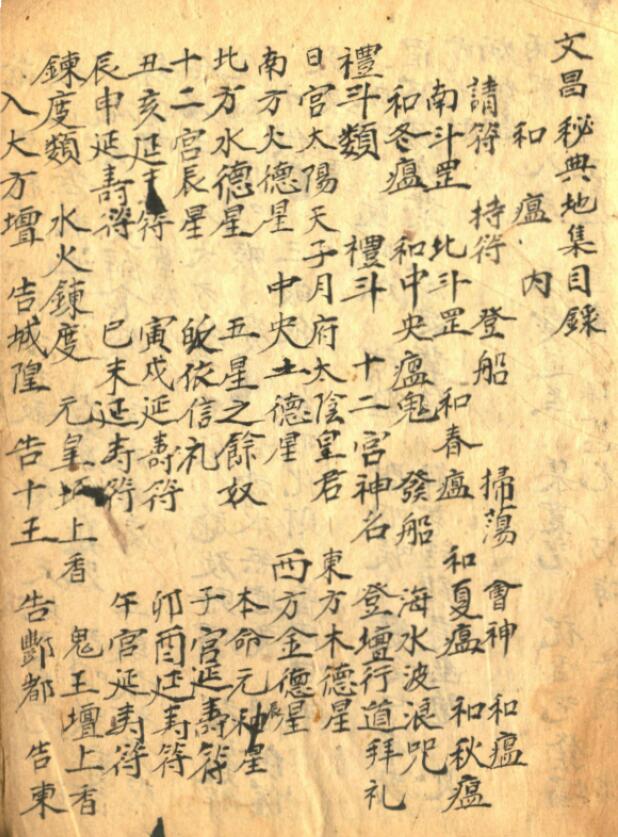 文昌秘典地集目錄
和瘟內
請符 持符 登船 掃蕩 會神 和瘟
南斗罡 北斗罡 和春瘟 和夏瘟 和秋瘟
和冬瘟 和中央瘟鬼 發船 海水波浪咒
禮斗類 禮斗 十二宮神名 登壇行道拜礼
日宮太陽天子月府太陰皇君 東方木德星
南方火德星 中央土德星 西方金德星
北方水德星 五星之餘奴 本命元神星
十二宮辰星 皈依信礼 子宮延壽符
丑亥延符 寅戍延壽符 卯酉延寿符
辰申延壽符 巳未延寿符 午宮延寿符
鍊度類 水火鍊度 元皇坛上香 鬼王壇上香
入大方壇 告城隍 告十王 告酆都 告東